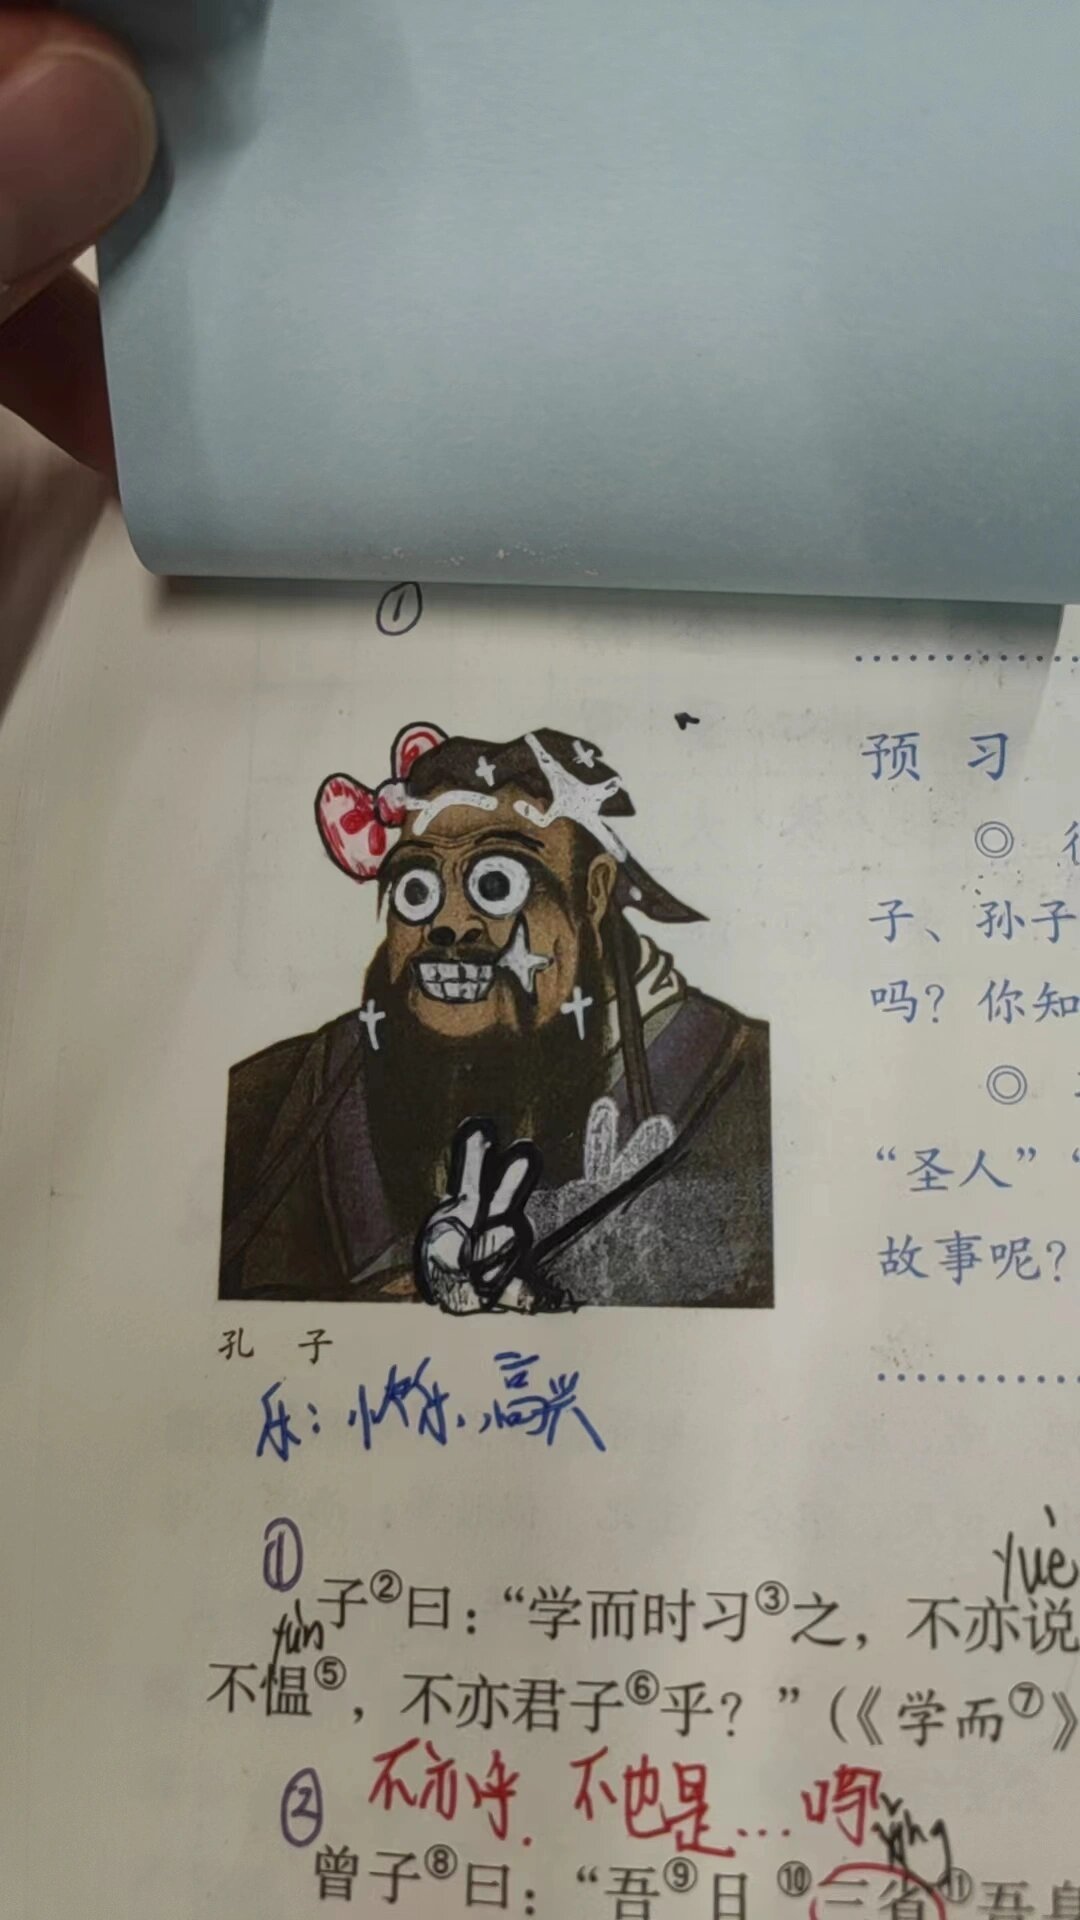 ①
预 习
◎
子、孙子
吗？你知
◎
“圣人”“
故事呢？
孔 子
乐：快乐、高兴
① yuè
子②曰：“学而时习③之，不亦说
yùn
不愠⑤，不亦君子⑥乎？”（《学而⑦》
② 不亦乎. 不也是…吗
xǐng
曾子⑧曰：“吾⑨日⑩三省⑪吾身